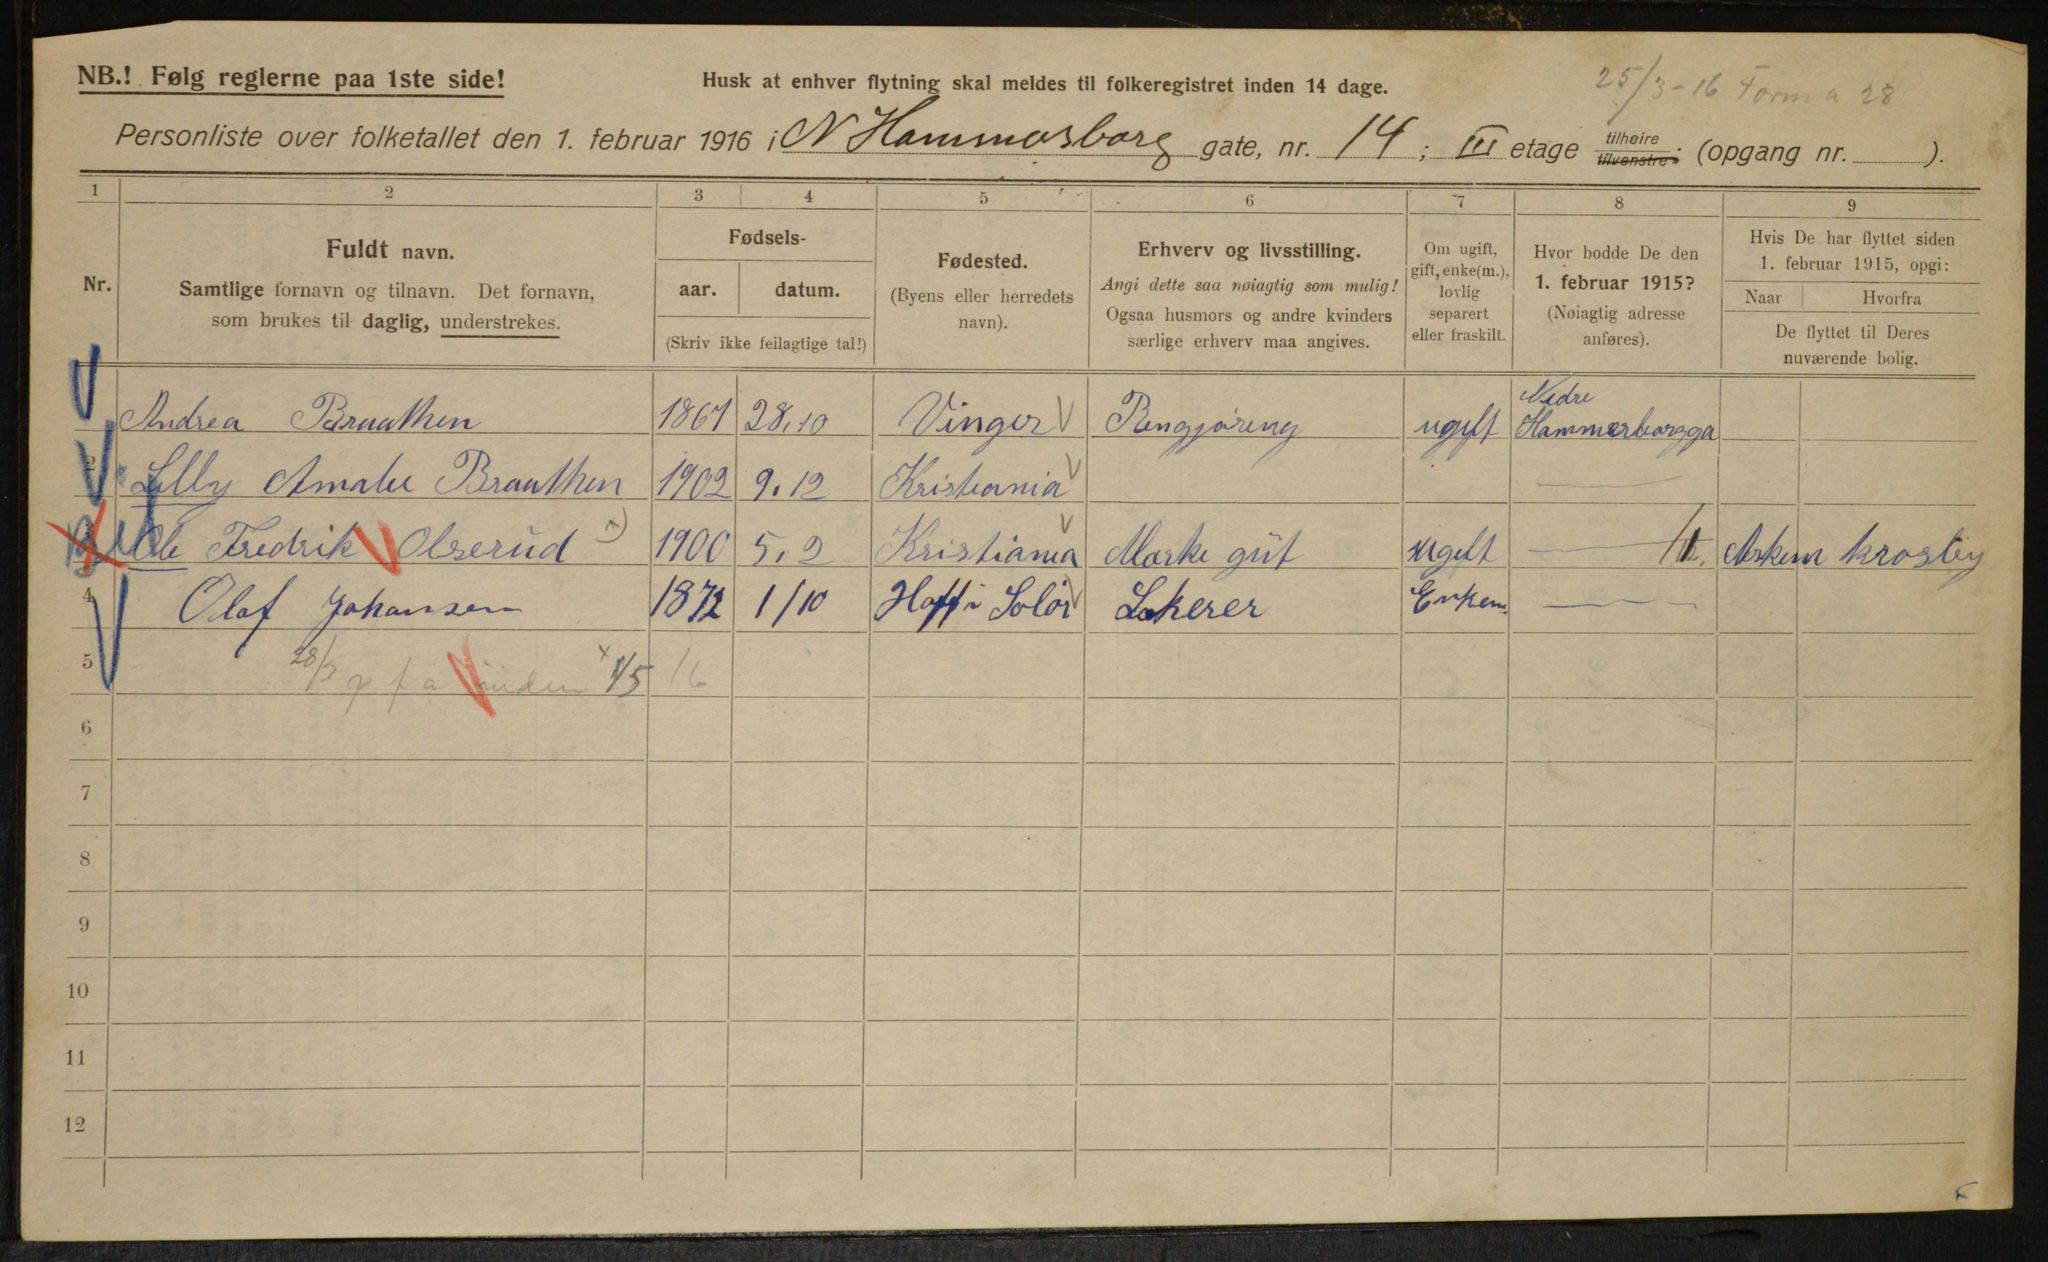 NB.! Følg reglerne paa 1ste side!
Husk at enhver flytning skal meldes til folkeregistret inden 14 dage.
25/3-16 Form a 28
Personliste over folketallet den 1. februar 1916 i N Hammersborg gate, nr. 14 ; III etage tilhøire tilvenstre. (opgang nr. ).
1 2 3 4 5 6 7 8 9
Nr.
Fuldt navn.
Samtlige fornavn og tilnavn. Det fornavn,
som brukes til daglig, understrekes.
Fødsels-
aar. datum.
(Skriv ikke feilagtige tal!)
Fødested.
(Byens eller herredets
navn).
Erhverv og livsstilling.
Angi dette saa nøiagtig som mulig!
Ogsaa husmors og andre kvinders
særlige erhverv maa angives.
Om ugift,
gift, enke(m.),
lovlig
separert
eller fraskilt.
Hvor bodde De den
1. februar 1915?
(Nøiagtig adresse
anføres).
Hvis De har flyttet siden
1. februar 1915, opgi:
Naar Hvorfra
De flyttet til Deres
nuværende bolig.
Andrea Braathen 1867 28.10 Vinger Rengjøring ugift Nedre Hammerborgga
2 Lilly Amalie Braathen 1902 9.12 Kristiania
Ole Fredrik Olserud x) 1900 5.2 Kristiania Maske gut ugift
4 Olaf Johansen 1872 1/10 Hoff i Solør Enkem
5 28/3 x 1/5 16
6
7
8
9
10
11
12